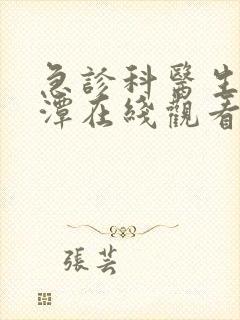 急診科醫生
潭在綫觀看
張芸